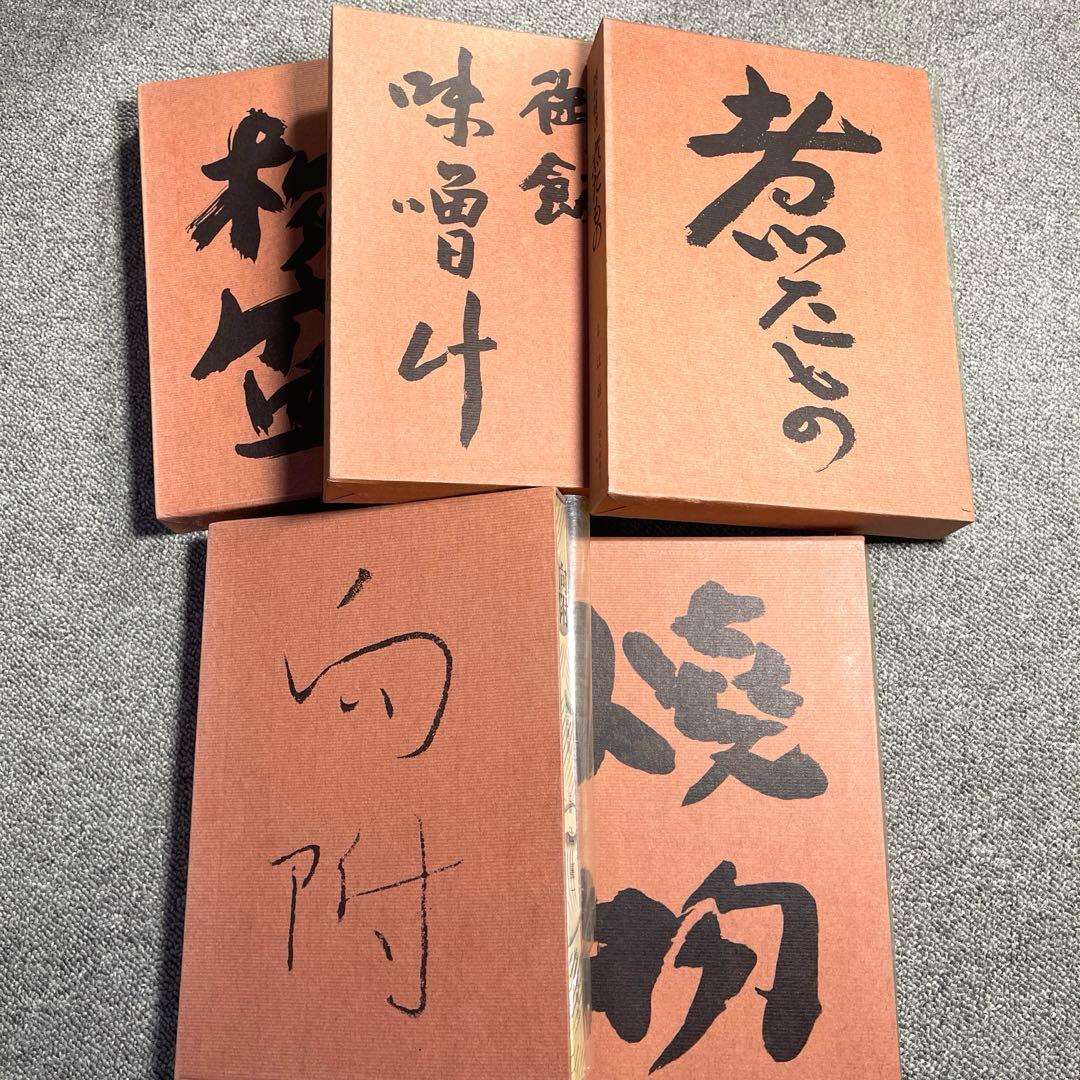 椀盛
御飯
味噌汁
煮たもの
向附
焼物